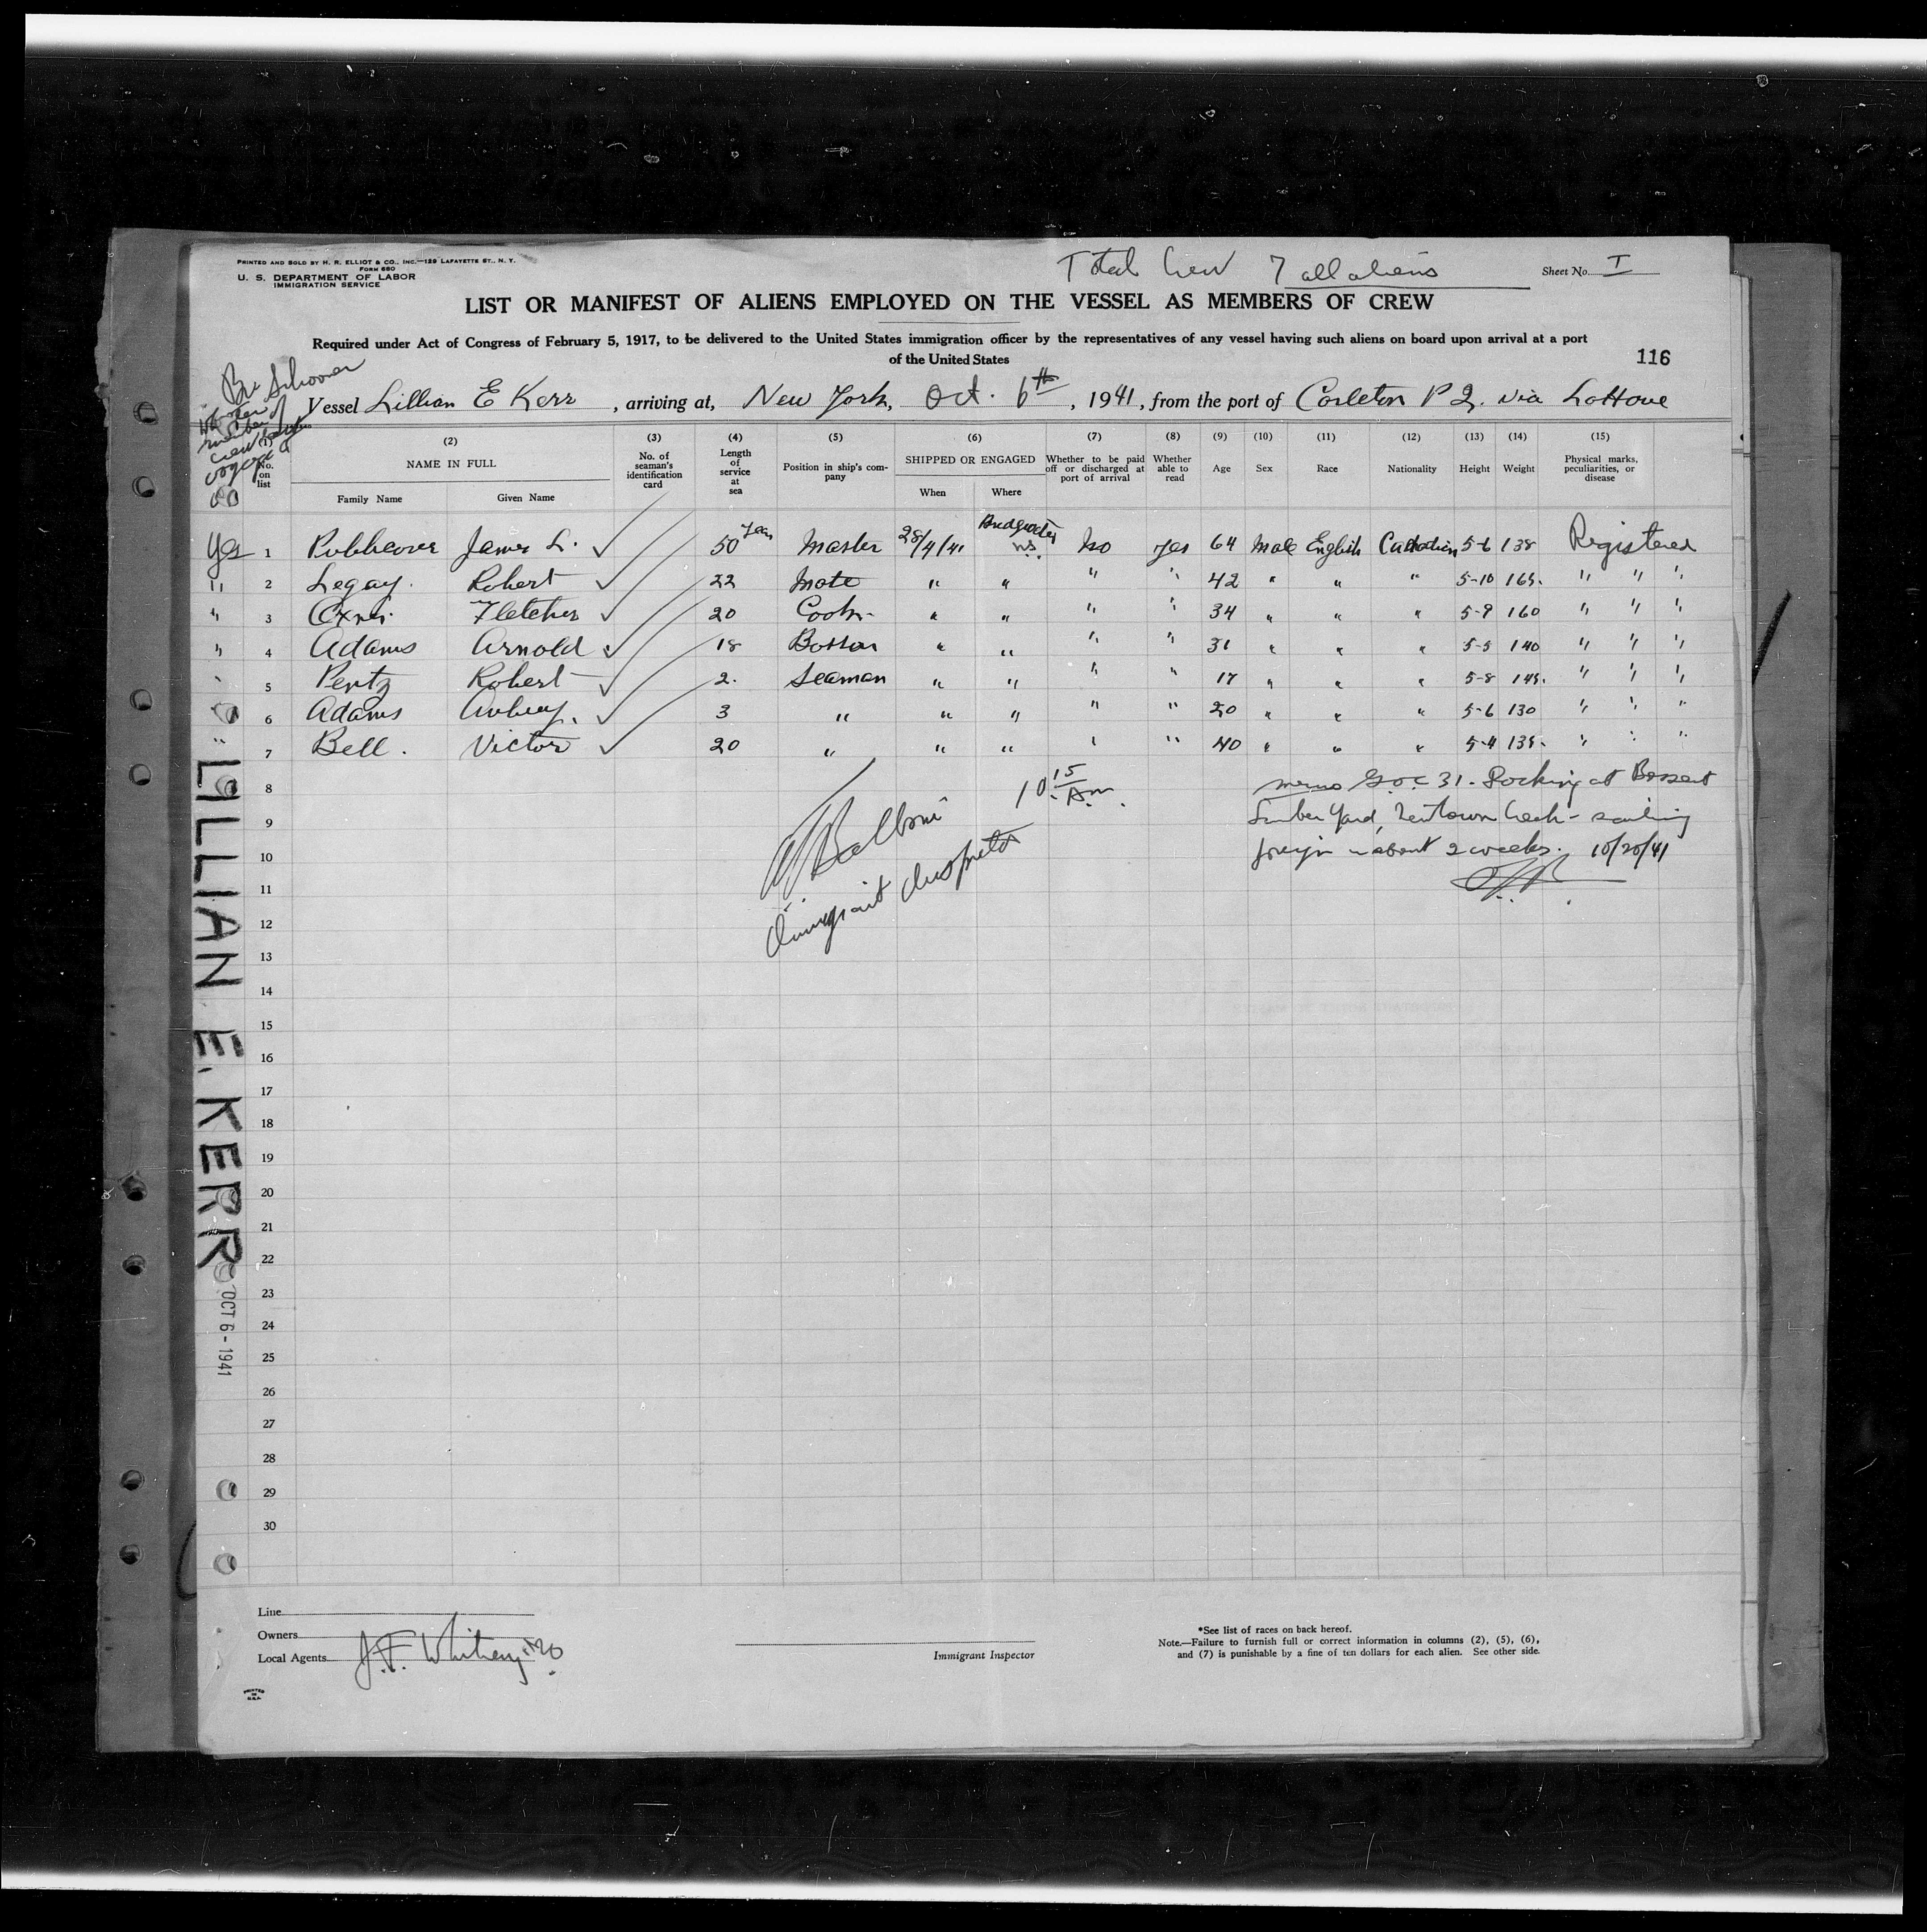 PRINTED AND SOLD BY H. R. ELLIOT & CO., INC.—129 LAFAYETTE ST., N. Y.
FORM 680
U. S. DEPARTMENT OF LABOR
IMMIGRATION SERVICE
Total Crew 7 all aliens
Sheet No. I
LIST OR MANIFEST OF ALIENS EMPLOYED ON THE VESSEL AS MEMBERS OF CREW
Required under Act of Congress of February 5, 1917, to be delivered to the United States immigration officer by the representatives of any vessel having such aliens on board upon arrival at a port
of the United States
116
Br Schooner
Vessel Lillian E Kerr, arriving at, New York, Oct. 6th, 1941, from the port of Carleton P Q. via LaHave
Whether
member of
crew
voyage
(2) (3) (4) (5) (6) (7) (8) (9) (10) (11) (12) (13) (14) (15)
No. on list
NAME IN FULL
Family Name Given Name
No. of seaman's identification card
Length of service at sea
Position in ship's company
SHIPPED OR ENGAGED
When Where
Whether to be paid off or discharged at port of arrival
Whether able to read
Age Sex Race Nationality Height Weight
Physical marks, peculiarities, or disease
Yes 1 James L. ✓ 50 Years Master 28/4/41 Bridgewater N.S. No Yes 64 Male English Canadian 5-6 138 Registered
" 2 Legay. Robert ✓ 22 Mate " " " " 42 " " " 5-10 165. " " "
" 3 Fletcher ✓ 20 Cook " " " " 34 " " " 5-9 160 " " "
" 4 Adams Arnold ✓ 18 Bossun " " " " 31 " " " 5-5 140 " " "
" 5 Pentz Robert ✓ 2. Seaman " " " " 17 " " " 5-8 145. " " "
6 Adams Aubrey. ✓ 3 " " " " " 20 " " " 5-6 130 " " "
" 7 Bell. Victor ✓ 20 " " " " " 40 " " " 5-4 135. " " "
8
9
10
11
12
13
14
15
16
17
18
19
20
21
22
23
24
25
26
27
28
29
30
10 15 AM.
Balboni
Immigrant Inspector
memo G.O.C. 31. Docking at Bossert
Lumber Yard, Newtown Creek - sailing
foreign in about 2 weeks. 10/20/41
LILLIAN E. KERR
OCT 6 - 1941
Line
Owners
Local Agents J.F. Whitney
Immigrant Inspector
*See list of races on back hereof.
Note.—Failure to furnish full or correct information in columns (2), (5), (6),
and (7) is punishable by a fine of ten dollars for each alien. See other side.
PRINTED IN U.S.A.